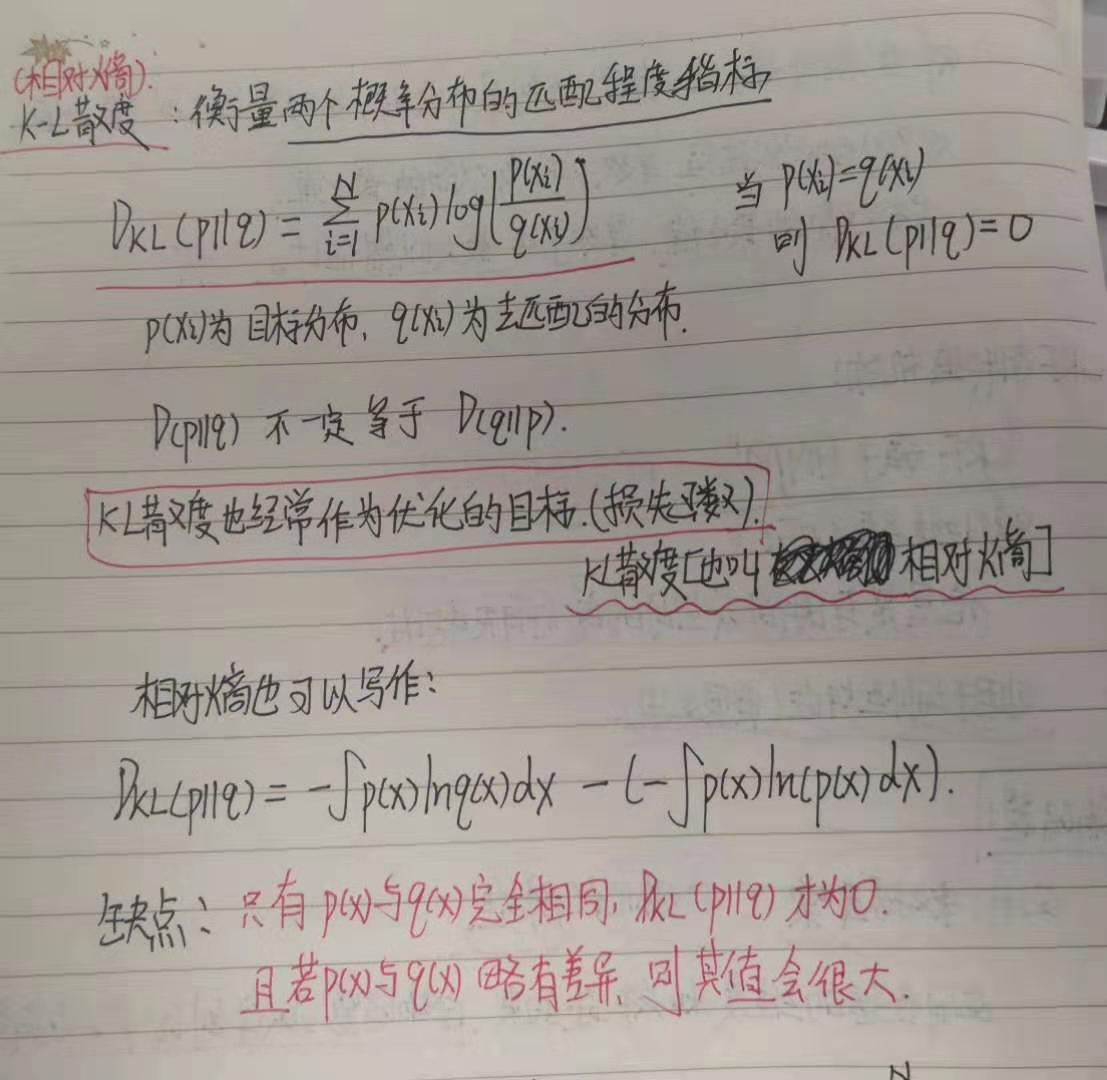 (相对熵).
K-L散度:衡量两个概率分布的匹配程度指标
D_KL(p||q) = \sum_{i=1}^{N} p(x_i) log(\frac{p(x_i)}{q(x_i)})
当 p(x_i)=q(x_i)
则 D_KL(p||q)=0
p(x_i)为目标分布, q(x_i)为去匹配的分布.
D(p||q) 不一定等于 D(q||p).
KL散度也经常作为优化的目标.(损失函数).
KL散度[也叫 相对熵]
相对熵也可以写作:
D_KL(p||q) = -∫p(x)lnq(x)dx - (-∫p(x)ln(p(x)dx).
缺点:只有p(x)与q(x)完全相同, D_KL(p||q)才为0.
且若p(x)与q(x)略有差异,则其值会很大.